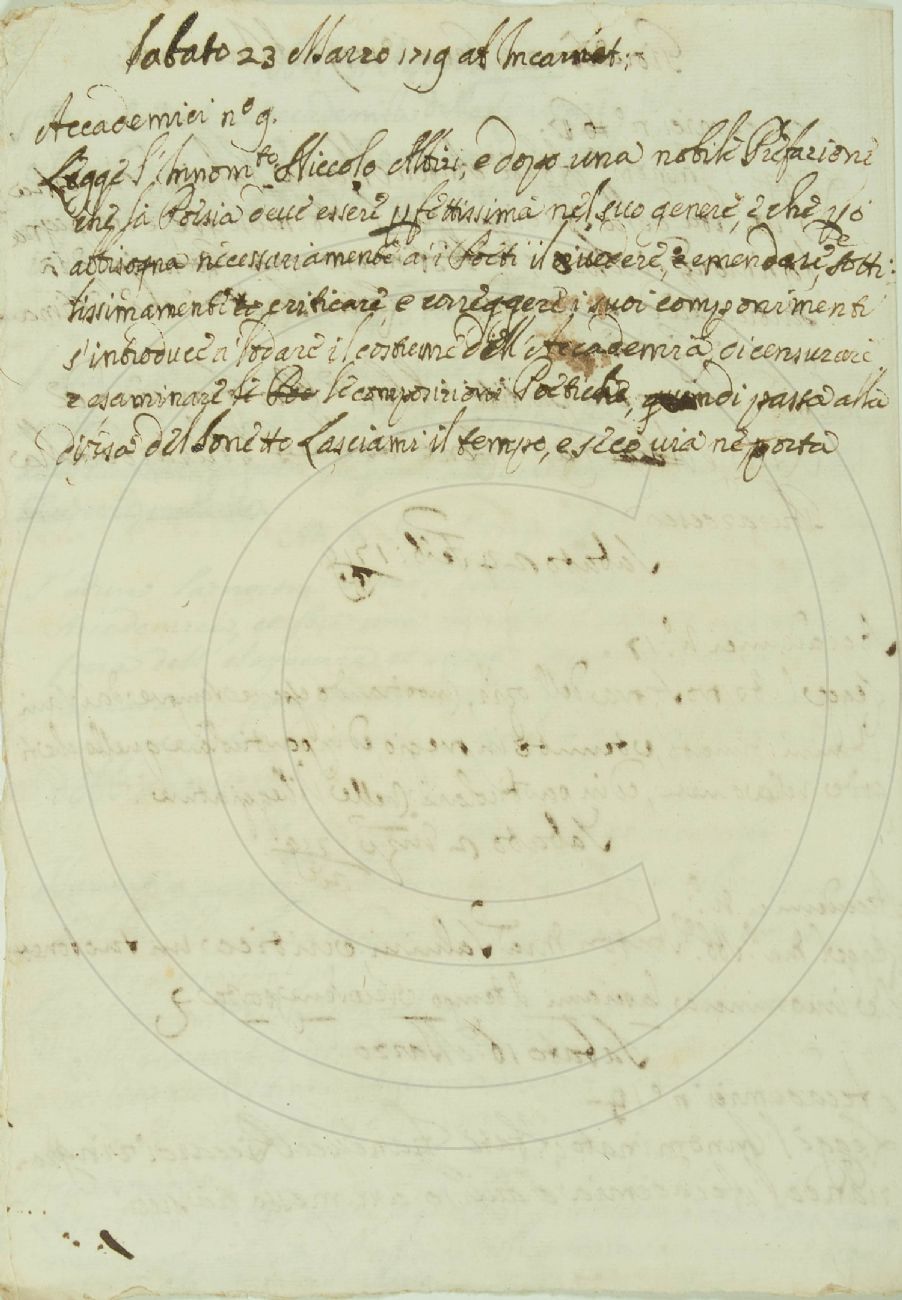 Sabato 23 Marzo 1719 ab Incarnat:
Accademici n.º 9.
Legge l'Innom.to Niccolo, e dopo una nobile Prefazione
che la Poesia deve essere pfettissima nel suo genere, e che pciò
abbisogna necessariamente a i Poeti il rivedere, e emendare, sotti:
lissimamente criticare, e correggere i suoi componimenti
s'introduce a lodare il costume dell'Accademia di censurare
e esaminare le Poe le composizioni Poetiche, quindi passa alla
difesa del Sonetto Lasciami il tempo, e seco via ne porta